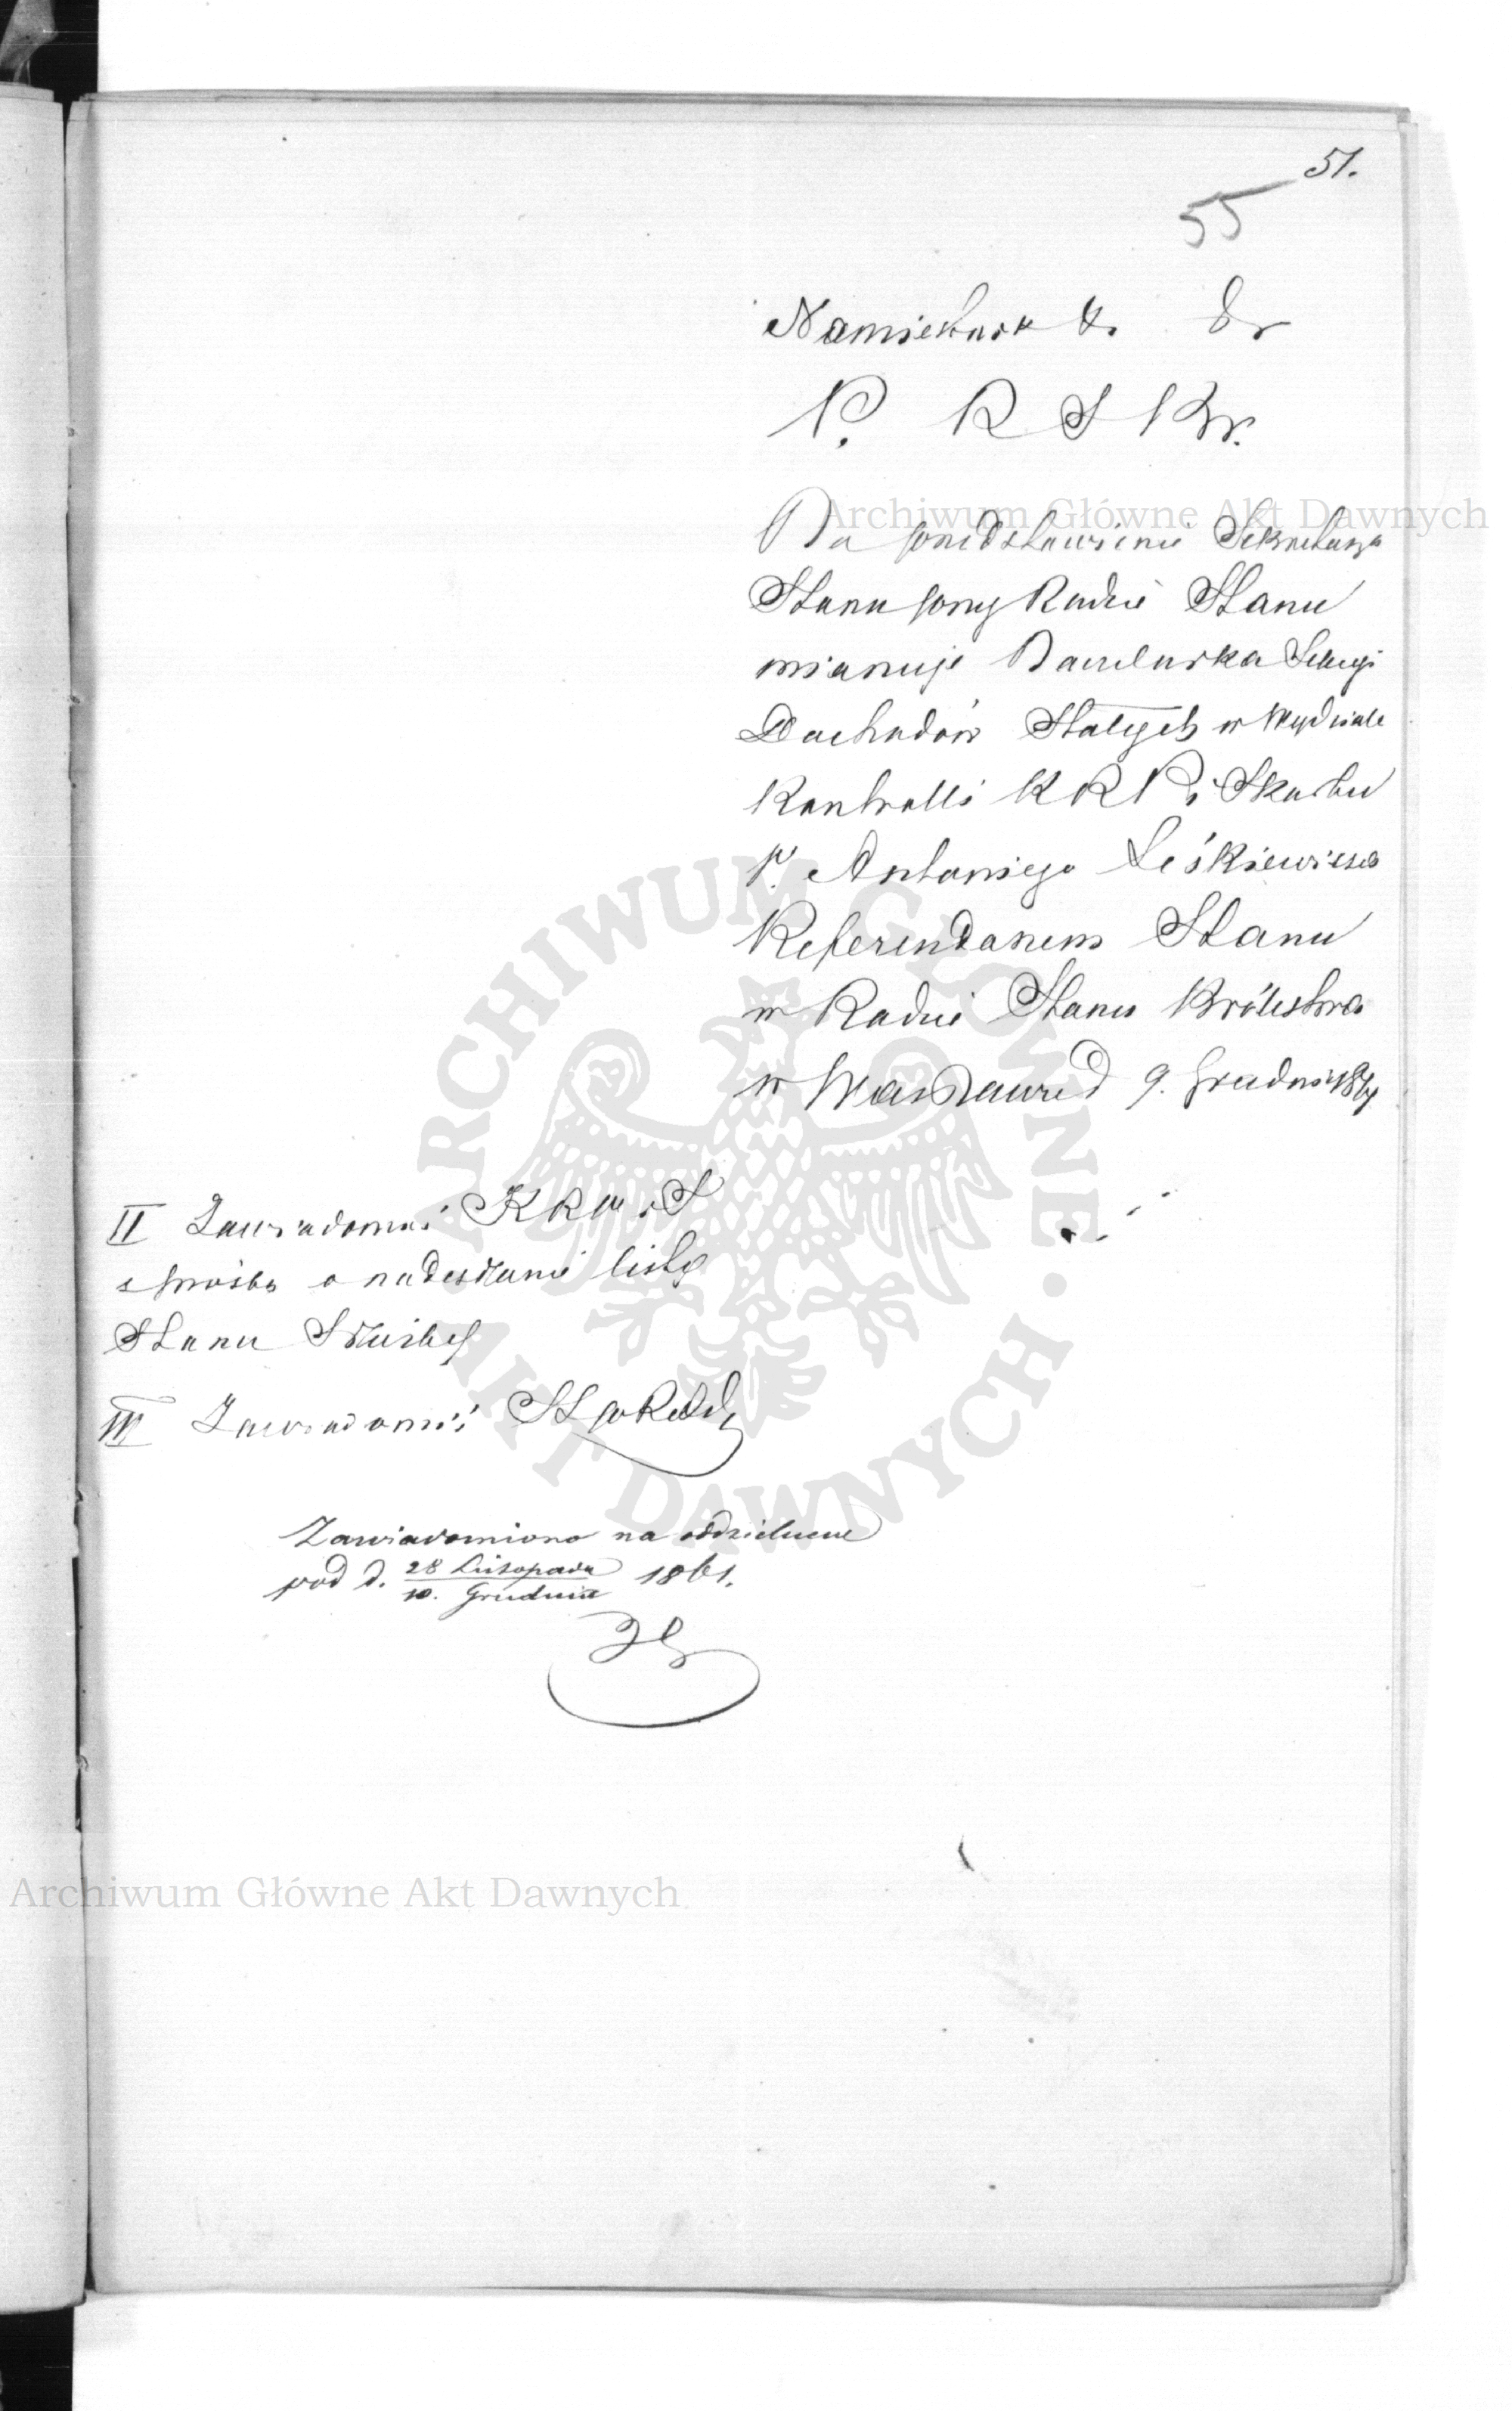 51.
55
Namiestnik
P. R S Kr.
Na przedstawienie Sekretarza
Stanu przy Radzie Stanu
mianuje Naczelnika Sekcyi
Dochodów Stałych w Wydziale
Kontrolli K R P i Skarbu
P. Antoniego Leśkiewicza
Referendarzem Stanu
w Radzie Stanu Królestwa
w Warszawie d 9. Grudnia 1861
II Zawiadomić K R P i S
z prośbą o nadesłanie listy
Stanu Służby
III Zawiadomić
Zawiadomiono na oddzielne
pod d. 28 Listopada 1861.
10. Grudnia
Archiwum Główne Akt Dawnych
Archiwum Główne Akt Dawnych
ARCHIWUM GŁÓWNE AKT DAWNYCH